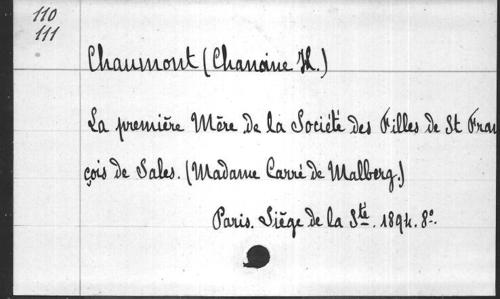 110
111
Chaumont (Chanoine H.)
La première Mère de la Société des Filles de St Fran
çois de Sales. (Madame Carré de Malberg.)
Paris. Siège de la Sté. 1894. 8º.